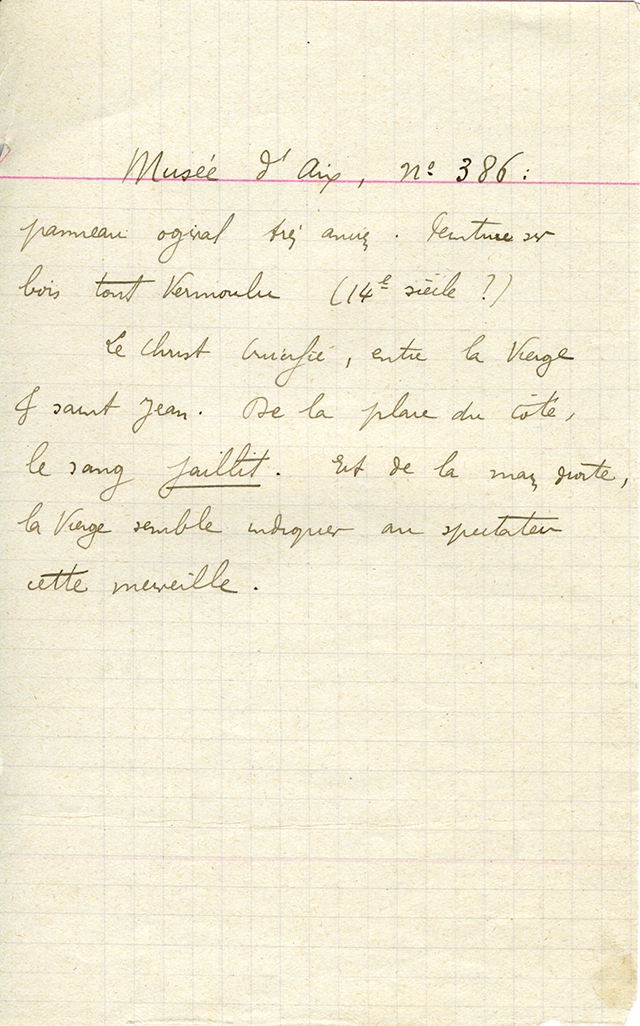 Musée d'Aix, nº 386 :
panneau ogival très ancien. Peinture sur
bois tout vermoulu (14e siècle ?)
Le Christ crucifié, entre la Vierge
& saint Jean. De la plaie du côté,
le sang jaillit. Et de la main droite,
la Vierge semble indiquer au spectateur
cette merveille.